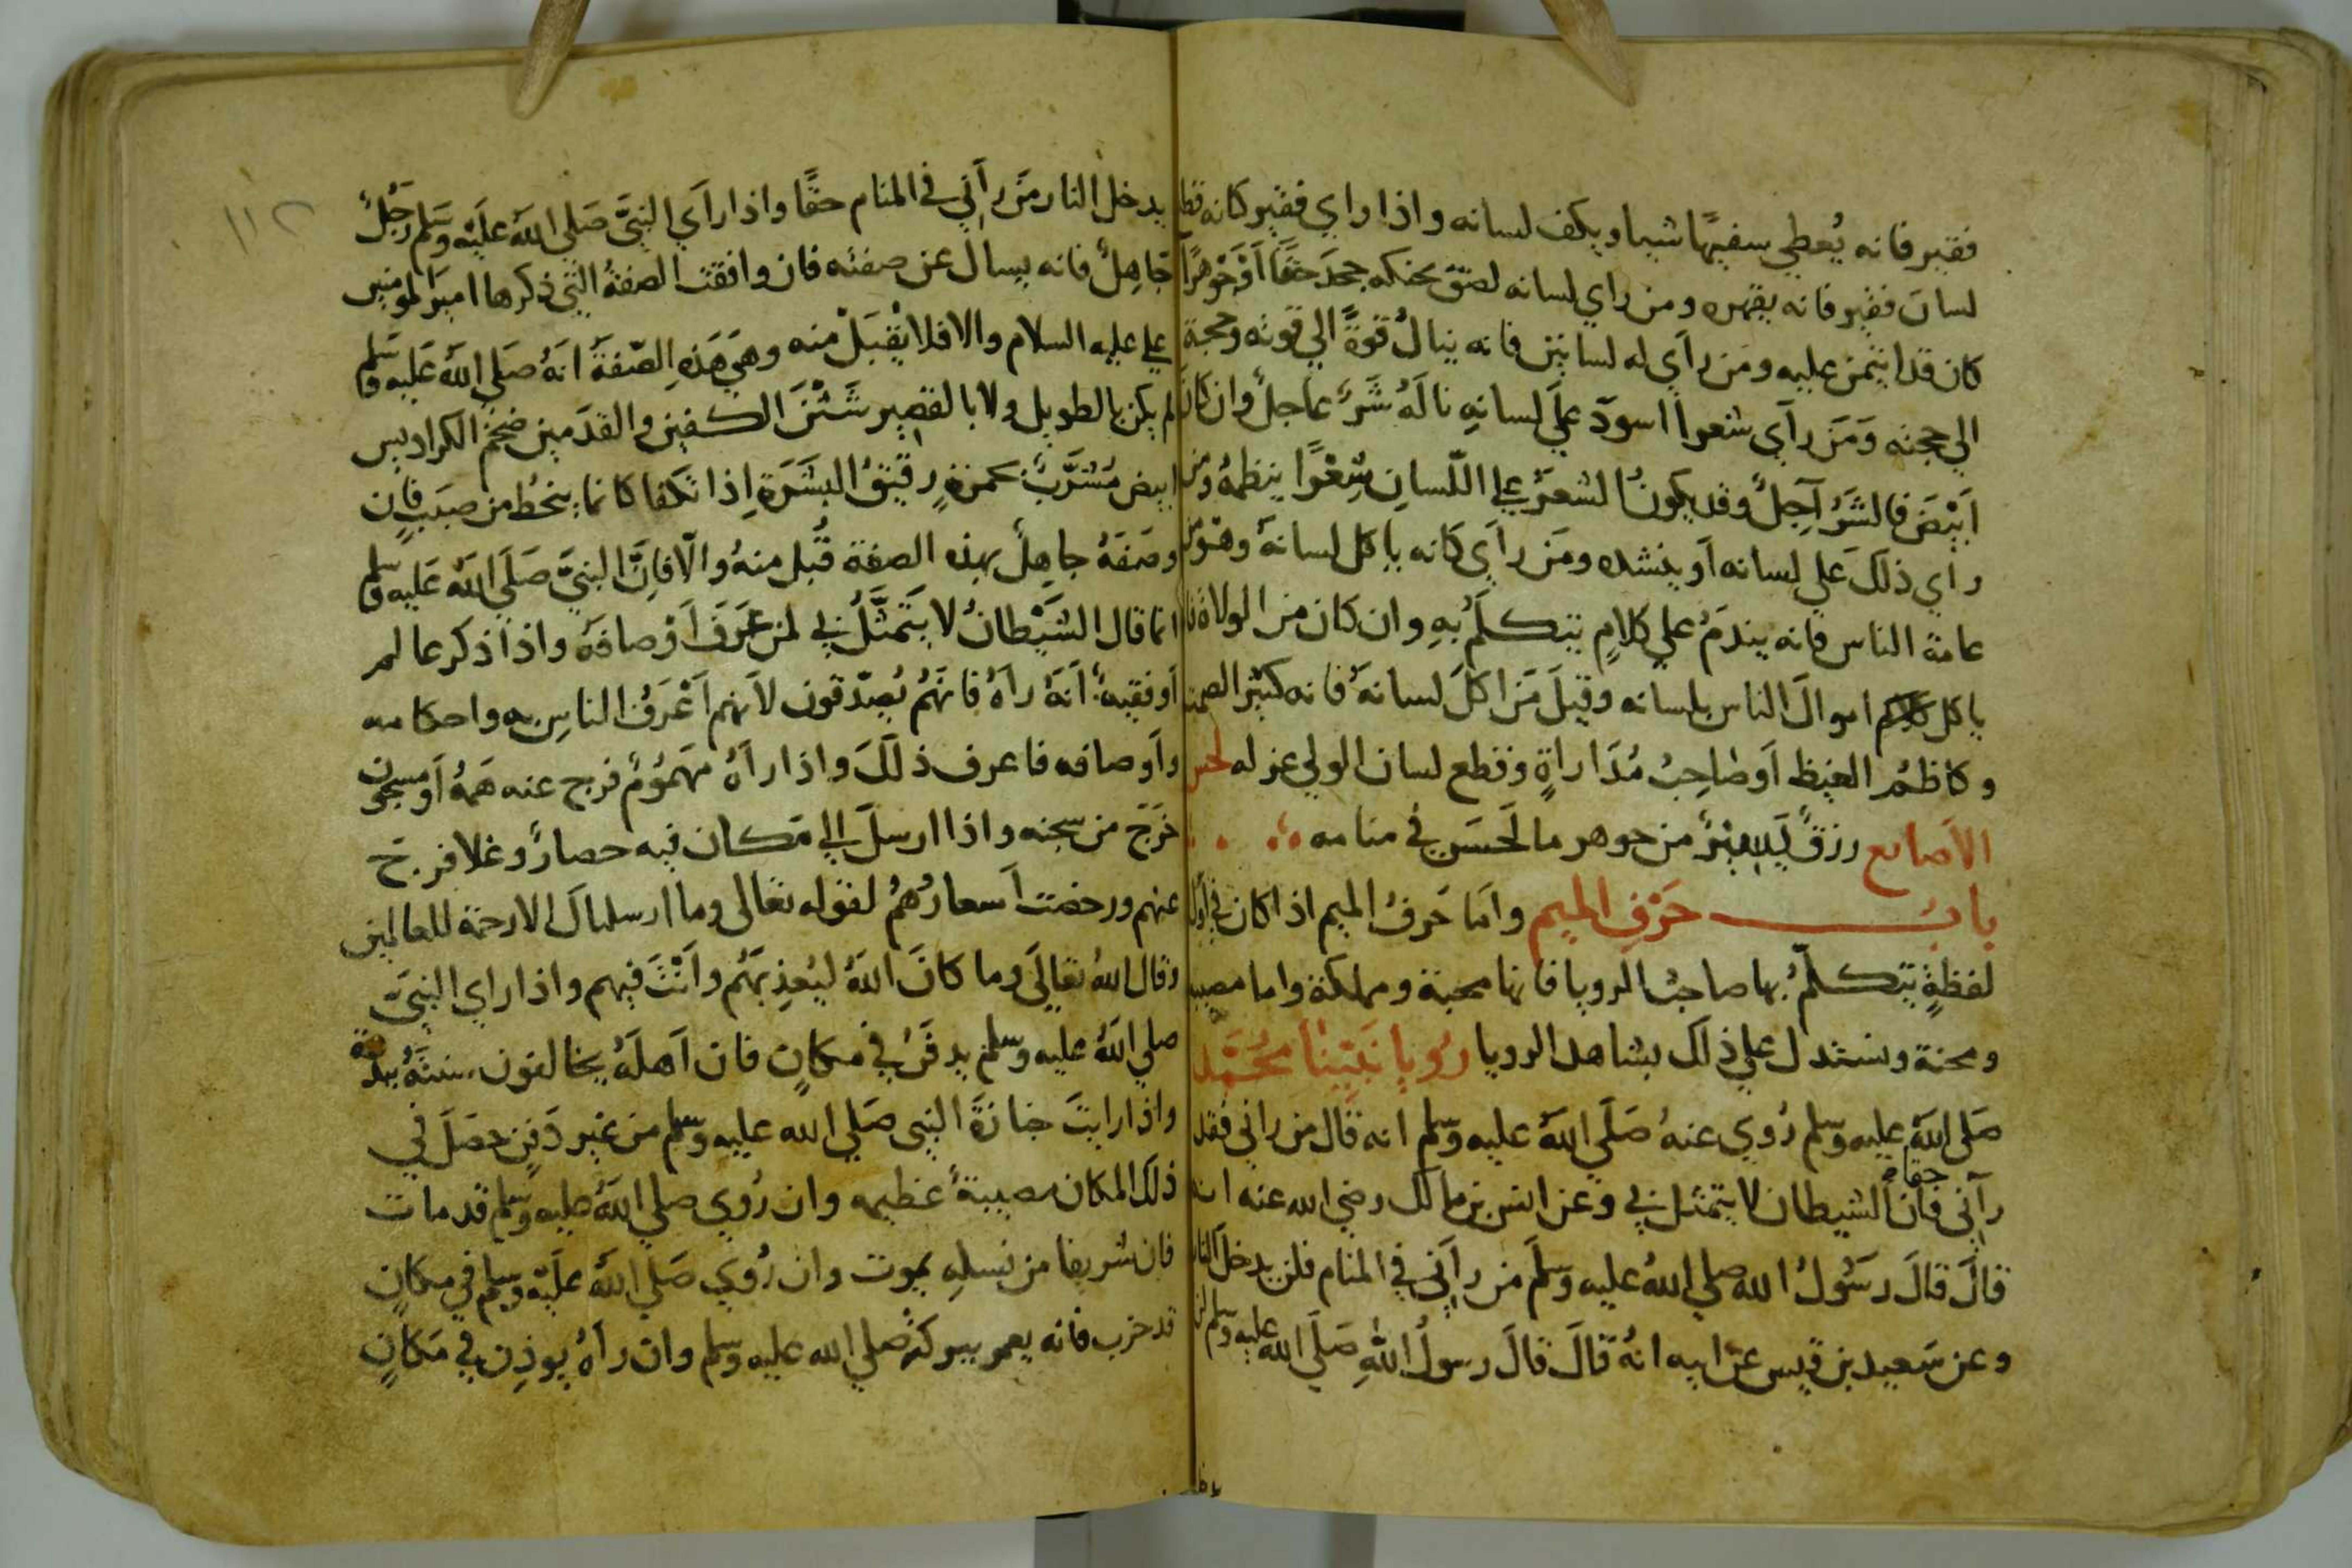 فقير فانه يُعطي سفيهًا شيا ويكف لسانه واذا راي فقير كانه قطع
لسان فقير فانه يقهره ومن راي لسانه لصق بحنكه جحدَ حقًا اَوْ جَوْهرًا
كان قد ايتمن عليه ومَن رأي له لسانين فانه ينالُ قوةً الي قوته وحجة
الي حجته وَمَن رأي شعرا اسودَ علَي لسانهِ نالَهُ شَرٌ عاجلٌ وان كانَ
ابْيضَ فالشَرُ آجِلٌ وقد يكونُ الشعرُ علي اللّسانِ شِعْرًا ينظمهُ ومن
رأي ذلكَ علي لسانه اَو ينشده ومَن رأي كانه ياكل لسانهُ وهوَ من
عامة الناس فانه يندمُ علي كلامٍ يتكلمُ بهِ وان كان من الولاة فا
ياكل اموالَ الناس بلسانه وقيلَ مَن اكلَ لسانهُ فانه كثير الصمت
وكاظمُ الغيظ اَو صاحِبُ مُدَاراةٍ وقطع لسان الوالي عزله لحس
الاَصابع رزقٌ يَسِيرٌ من جوهر ما لَحسَ في منامه
بابُ حَرْفِ الميم واَما حَرفُ الميم اذا كان في اَول
لفظةٍ يتكلّمُ بها صاحبُ الرويا فانها محبة ومملكة واما مصيبة
ومحنة ويستدل علي ذلك بشاهد الرويا رُويا نَبيّنا مُحَمَّد
صَلي اللهُ عليه وسلم رُوي عنهُ صَلي اللهُ عليه وسلم انه قال من راني فقد
رآني حقا فان الشيطان لا يتمثل بي وعن انس بن مالك رضي الله عنه انه
قالَ قالَ رسُولُ الله صلي اللهُ عليه وسَلَم من رآني في المنام فلن يدخلَ النار
وعن سَعيد بن قيس عن ابيه انهُ قالَ قالَ رسولُ اللهِ صَلَي الله عليه وسلم لن
١١٢
يدخل النار مَن رآني في المنام حقًا واذا رأي النبيَّ صَلي اللهُ علَيْه وسَلم رَجُلٌ
جَاهِلٌ فانه يسالُ عن صفته فان وافقت الصفةُ التي ذكرها اميرَ المومنين
علي عليه السلام والا فلا يُقْبَلْ منه وهيَ هَذهِ الصّفة انهُ صَلي اللهُ عَليه وسَلم
لم يكن بالطويل ولا بالقصير شَثْنَ الكفين والقدَمين ضخمَ الكراديس
ابيض مُشَرَّبٌ بحمرةٍ رقيقُ البَشَرَةِ اِذا تكفا كانما ينحَطُ من صبَبٍ فان
وصَفهُ جاهِلٌ بهذه الصفة قُبل منهُ والّا فاِنَّ النبيَّ صَلَي اللهُ عَليه وسلم
انما قال الشَيْطانُ لا يَتَمثّلُ بي لمن عَرَفَ اَوْصافهُ واذا ذكر عالم
اَو فقيهٌ انهُ راهُ فانهُم يُصدّقون لاَنهم اَعْرَفُ الناسِ به واحكامه
واَوصافه فاعرف ذلكَ واذا راَهُ مهَمُومٌ فرج عنه هَمهُ اَو مسجون
خرَجَ من سجنه واذا ارسلَ الي مكان فيه حصارٌ وغلا فرجَ
عنهم ورخصت اَسعارُهمُ لقوله تعالى وما ارسلناكَ الا رحمة للعالمين
وقال اللهُ تعالَي وما كانَ اللهُ ليُعذِبهَمُ واَنْتَ فيهم واذا راي النبيَّ
صلي اللهُ عليه وسلم يدفَنُ في مكانٍ فان اَهلهُ يخالفون سنتهُ ببدعة
واذا رايتَ جنازةَ النبي صَلي الله عليه وسلم من غير دَفنٍ حصَلَ في
ذلك المكان مصيبةٌ عظيمه وان رُوي صلي اللهُ عليه وسلم قد مات
فان شريفا من نسلهِ يموت وان رُوي صَلي اللهُ علَيْه وسلم في مكانٍ
قد خرب فانه يعمر ببركته صلي الله عليه وسلم وان راهُ يوذِن في مَكانٍ